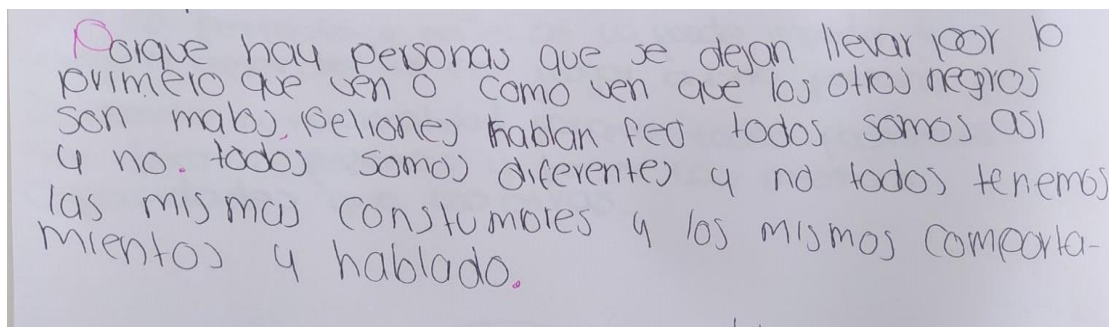 Porque hay personas que se dejan llevar por lo
primero que ven o como ven que los otros negros
son malos, peliones hablan feo todos somos asi
y no. todos somos diferentes y no todos tenemos
las mismas constumbres y los mismos comporta-
mientos y hablado.